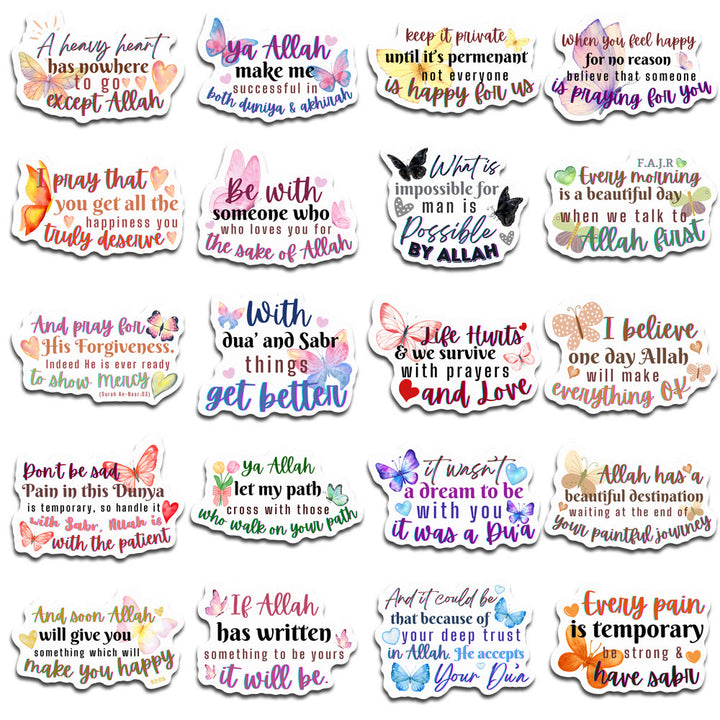 A heavy heart
has nowhere
to go
except Allah
Ya Allah
make me
successful in
both duniya & akhirah
keep it private
until it's permenant
not everyone
is happy for us
When you feel happy
for no reason
believe that someone
is praying for you
I pray that
you get all the
happiness you
truly deserve
Be with
someone who
who loves you for
the sake of Allah
What is
impossible for
man is
Possible
BY ALLAH
F.A.J.R
Every morning
is a beautiful day
when we talk to
Allah first
And pray for
His Forgiveness.
Indeed He is ever ready
to show Mercy
(Surah An-Nasr:03)
With
dua' and Sabr
things
get better
Life Hurts
& we survive
with prayers
and Love
I believe
one day Allah
will make
everything OK
Don't be sad
Pain in this Dunya
is temporary, so handle it
with Sabr, Allah is
with the patient
Ya Allah
let my path
cross with those
who walk on your path
it wasn't
a dream to be
with you
it was a Du'a
Allah has a
beautiful destination
waiting at the end of
your painful journey
And soon Allah
will give you
something which will
make you happy
93:05
If Allah
has written
something to be yours
it will be.
And it could be
that because of
your deep trust
in Allah. He accepts
Your Du'a
Every pain
is temporary
be strong &
have sabr